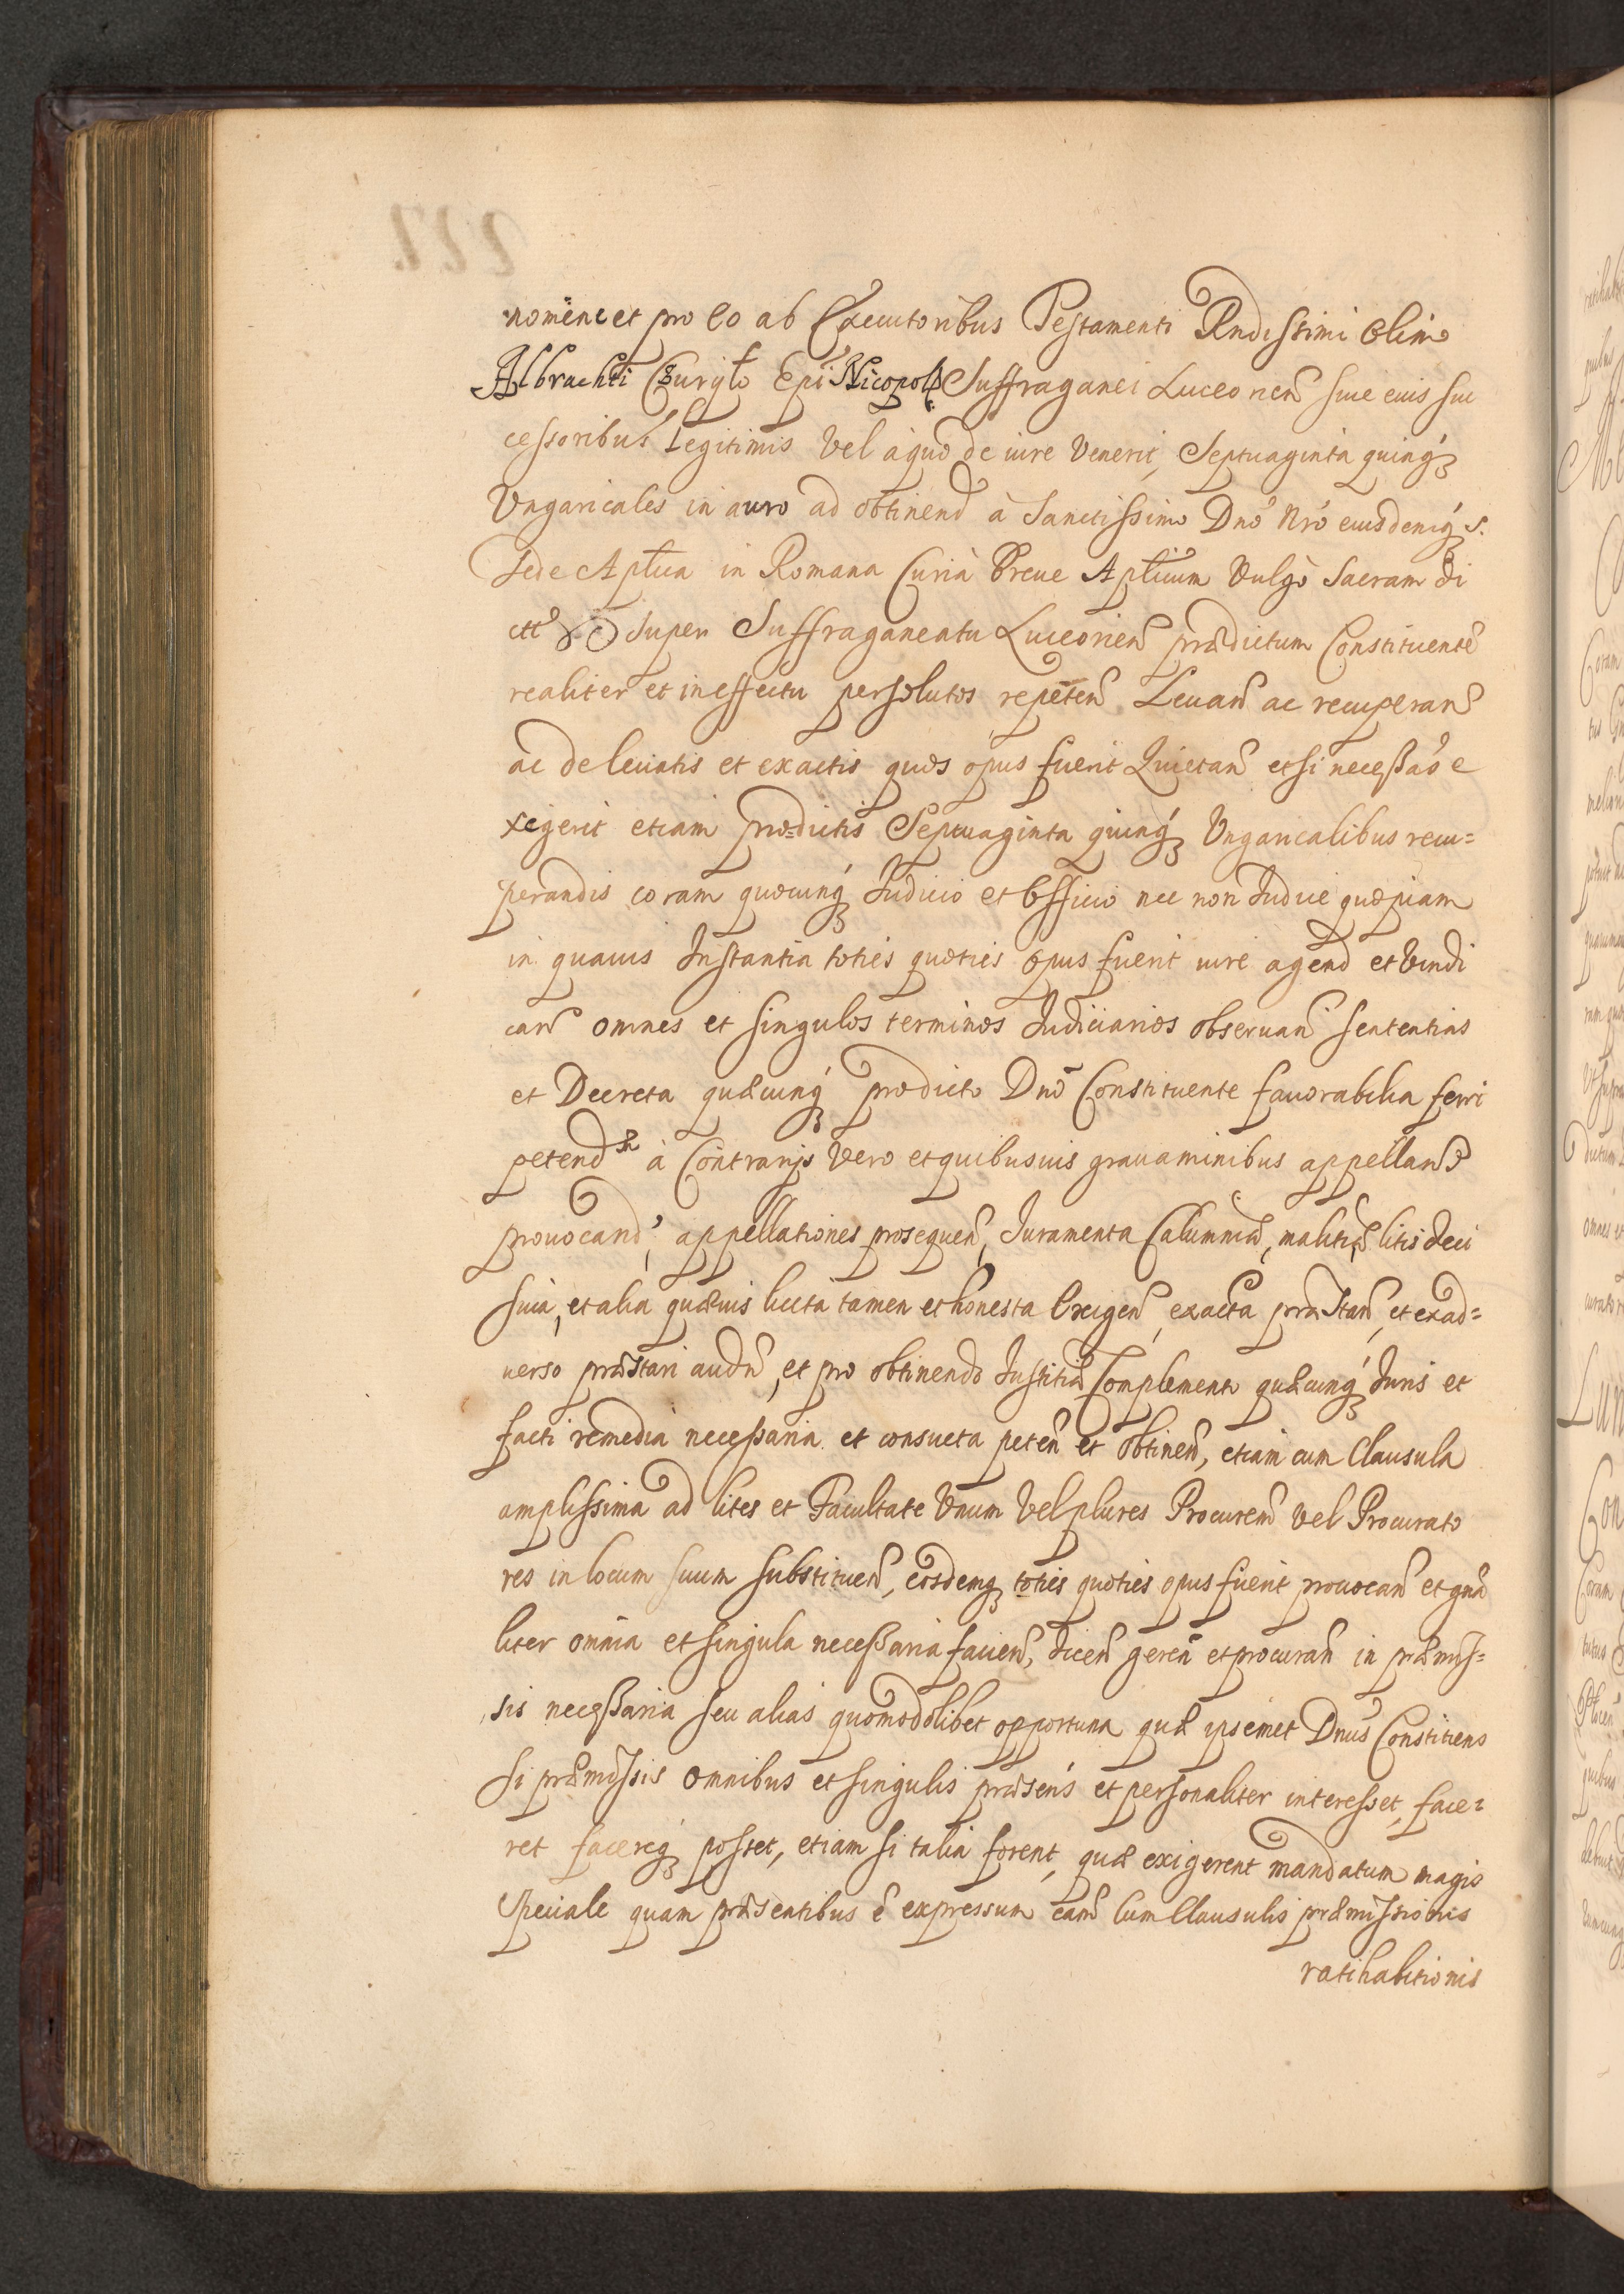 nomine et pro eo ab Executoribus Testamenti Rndissimi olim
Albrachti Epi Nicopol Suffraganei Luceorien siue eius suc
cessoribus Legitimis Vel à quo de iure Venerit, Septuaginta quinq́
Vngaricales in auro ad obtinend à Sanctissimo Dno Nro eiusdemq́ S.
Sede Aptica in Romana Curià Breue Apticum Vulgò Sacram di
ctt super Suffraganeatu Luceorien prædictum Constituente
realiter et in effectu persolutos repeten Leuan ac recuperan
ac de leuatis et exactis quos opus fuerit Quietan et si necessaô e
xegerit etiam prædictis Septuaginta quinq́ Vngaricalibus recu=
perandis coram quocunq́ Iudicio et Officio nec non Iudice quopiam
in quauis Instantia toties quoties opus fuerit iure agend et Vindi
can omnes et singulos terminos Iudiciarios obseruan sententias
et Decreta quæcunq́ prædicto Dno Constituente fauorabilia ferri
petend à Contrarijs Vero et quibusuis grauaminibus appellan
prouocand, appellationes prosequen, Iuramenta Calumniæ, malitiæ litis deci
siua, et alia quæuis licita tamen et honesta Exigen, exacta præstan, et ex ad=
uerso præstari audn, et pro obtinendo Iustitiæ Complemento quæcunq́ Iuris et
facti remedia necessaria et consueta peten et obtinen, etiam cum Clausula
amplissima ad lites et Facultate Vnum Vel plures Procurem Vel Procurato
res in locum suum substituen, eosdemq toties quoties opus fuerit prouocan et gnâ
liter omnia et singula necessaria facien, dicen geren et procuran in præmis=
sis necessaria seu alias quomodolibet opportuna quæ ipsemet Dnus Constitiens
si præmissis omnibus et singulis præsens et personaliter interesset, face=
ret facereq́ posset, etiam si talia forent, quæ exigerent mandatum magis
speciale quam præsentibus é expressum Cum Clausulis præmissionis
ratihabitionis